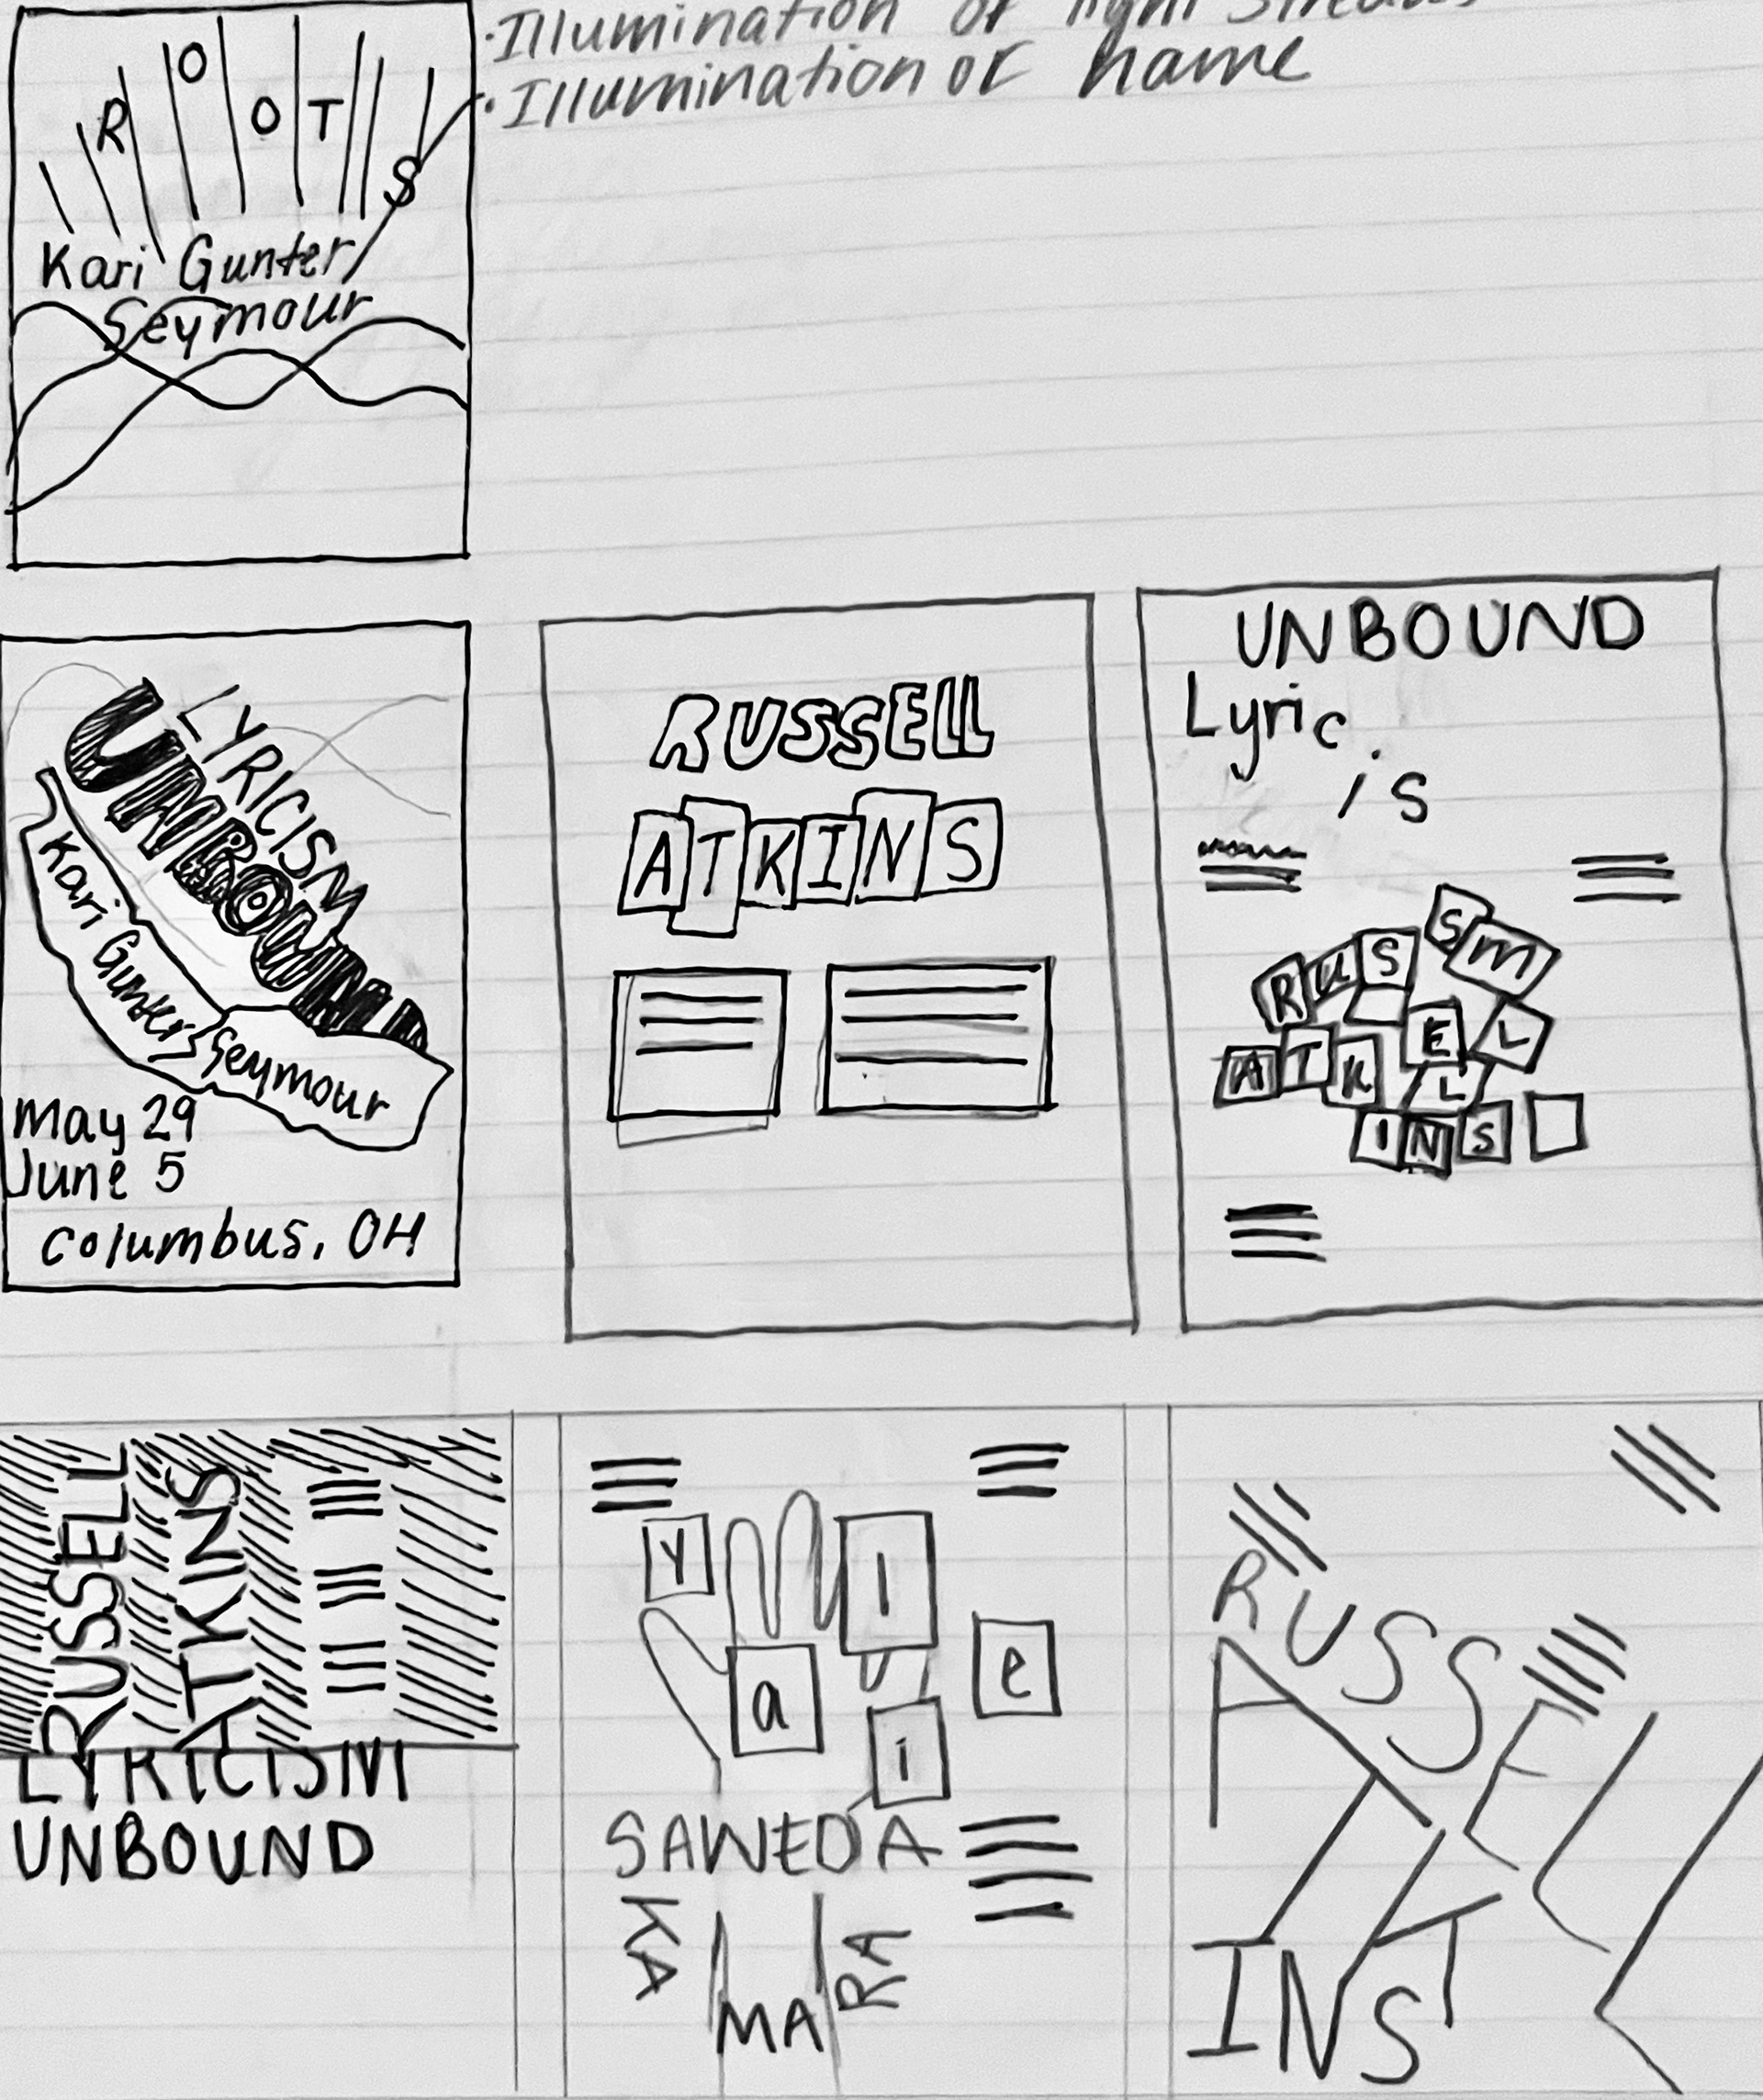 ·Illumination of light streaks
·Illumination of name
R O O T S
Kari Gunter
Seymour
LYRICISM
UNBOUND
Kari Gunter
Seymour
May 29
June 5
Columbus, OH
RUSSELL
ATKINS
UNBOUND
Lyric
is
SM
RUS
E L
ATK L
INS
RUSSELL
ATKINS
LYRICISM
UNBOUND
Y l
a e
i
SAWEDA
KA
MA
RA
RUSSELL
ATK
INS